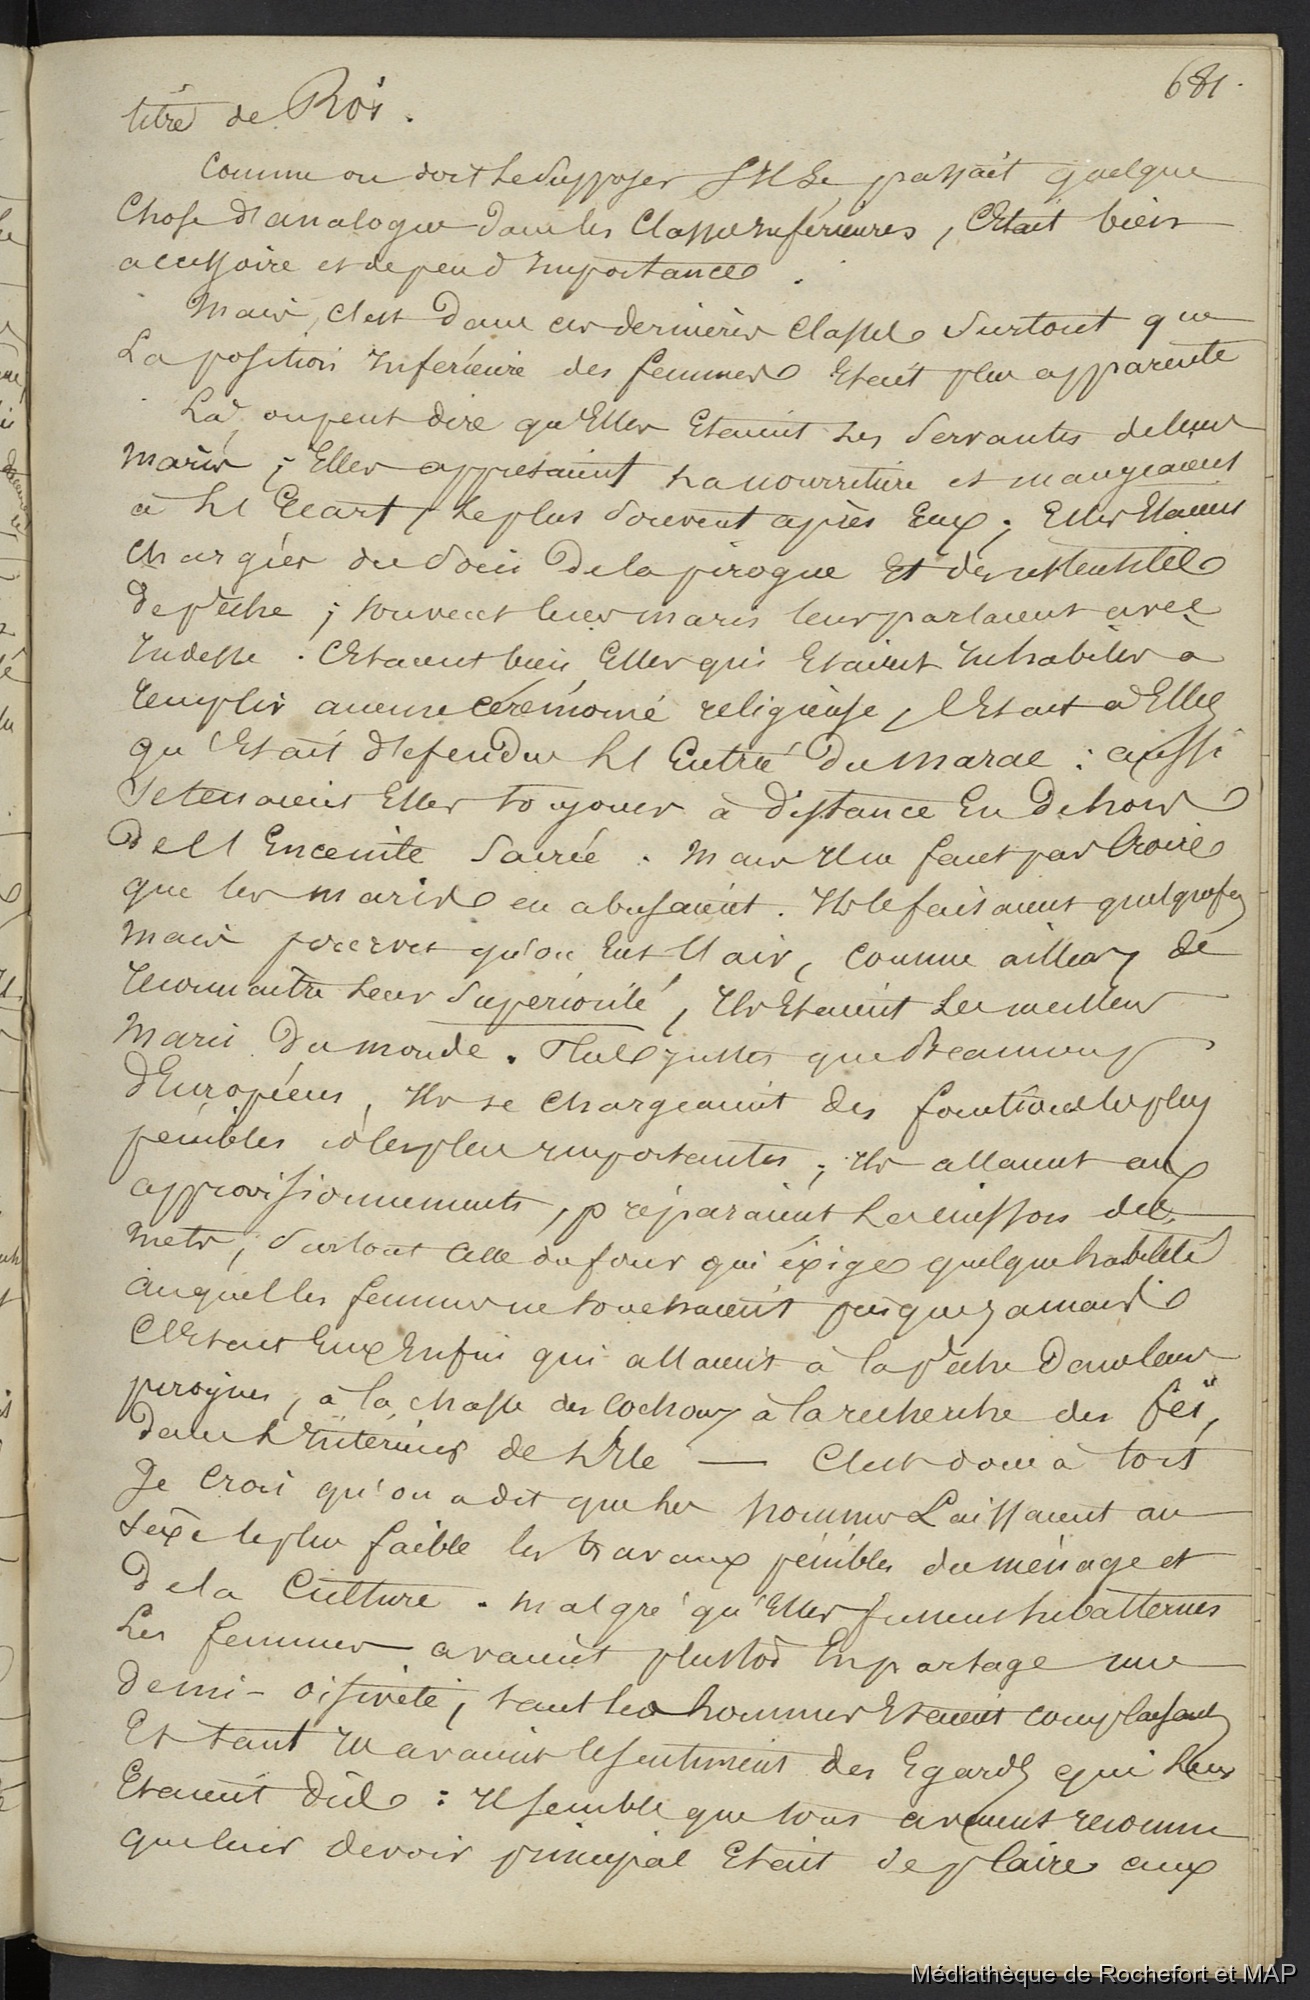 681.
titre de Roi.
Comme on doit le supposer s'il se passait quelque
chose d'analogue dans les classes inférieures, c'était bien
accessoire et de peu d'importance.
Mais, c'est dans ces dernières classes surtout que
la position inférieure des femmes était plus apparente
Là, on peut dire qu'elles étaient les servantes de leurs
maris ; elles apprêtaient la nourriture et mangeaient
à l'écart, le plus souvent après eux ; elles étaient
chargées du soin de la pirogue et des ustensiles
de pêche ; souvent leurs maris leur parlaient avec
rudesse. C'étaient bien elles qui étaient inhabiles à
remplir aucune cérémonie religieuse, c'était à elles
qu'était défendue l'entrée du marae : aussi
se tenaient elles toujours à distance en dehors
de l'enceinte sacrée. Mais il ne faut pas croire
que les maris en abusaient. Ils le faisaient quelquefois
mais pourvu qu'on eut l'air, comme ailleurs de
reconnaître leur supériorité, ils étaient les meilleurs
maris du monde. Plus justes que beaucoup
d'Européens, ils se chargeaient des fonctions les plus
pénibles et les plus importantes ; ils allaient aux
approvisionnements, préparaient la cuisson des
mets, surtout celle du four qui exige quelque habileté
auquel les femmes ne touchaient presque jamais
C'étaient eux enfin qui allaient à la pêche dans leurs
pirogues, à la chasse des cochons, à la recherche des féï,
dans l'intérieur de l'île — C'est donc à tort
je crois qu'on a dit que les hommes laissaient au
sexe le plus faible les travaux pénibles du ménage et
de la culture. Malgré qu'elles fussent subalternes
les femmes avaient plustôt en partage une
demi-oisiveté, tant les hommes étaient complaisants
et tant ils avaient le sentiment des égards qui leur
étaient dûs : il semble que tous avaient reconnu
que leur devoir principal était de plaire aux
Médiathèque de Rochefort et MAP